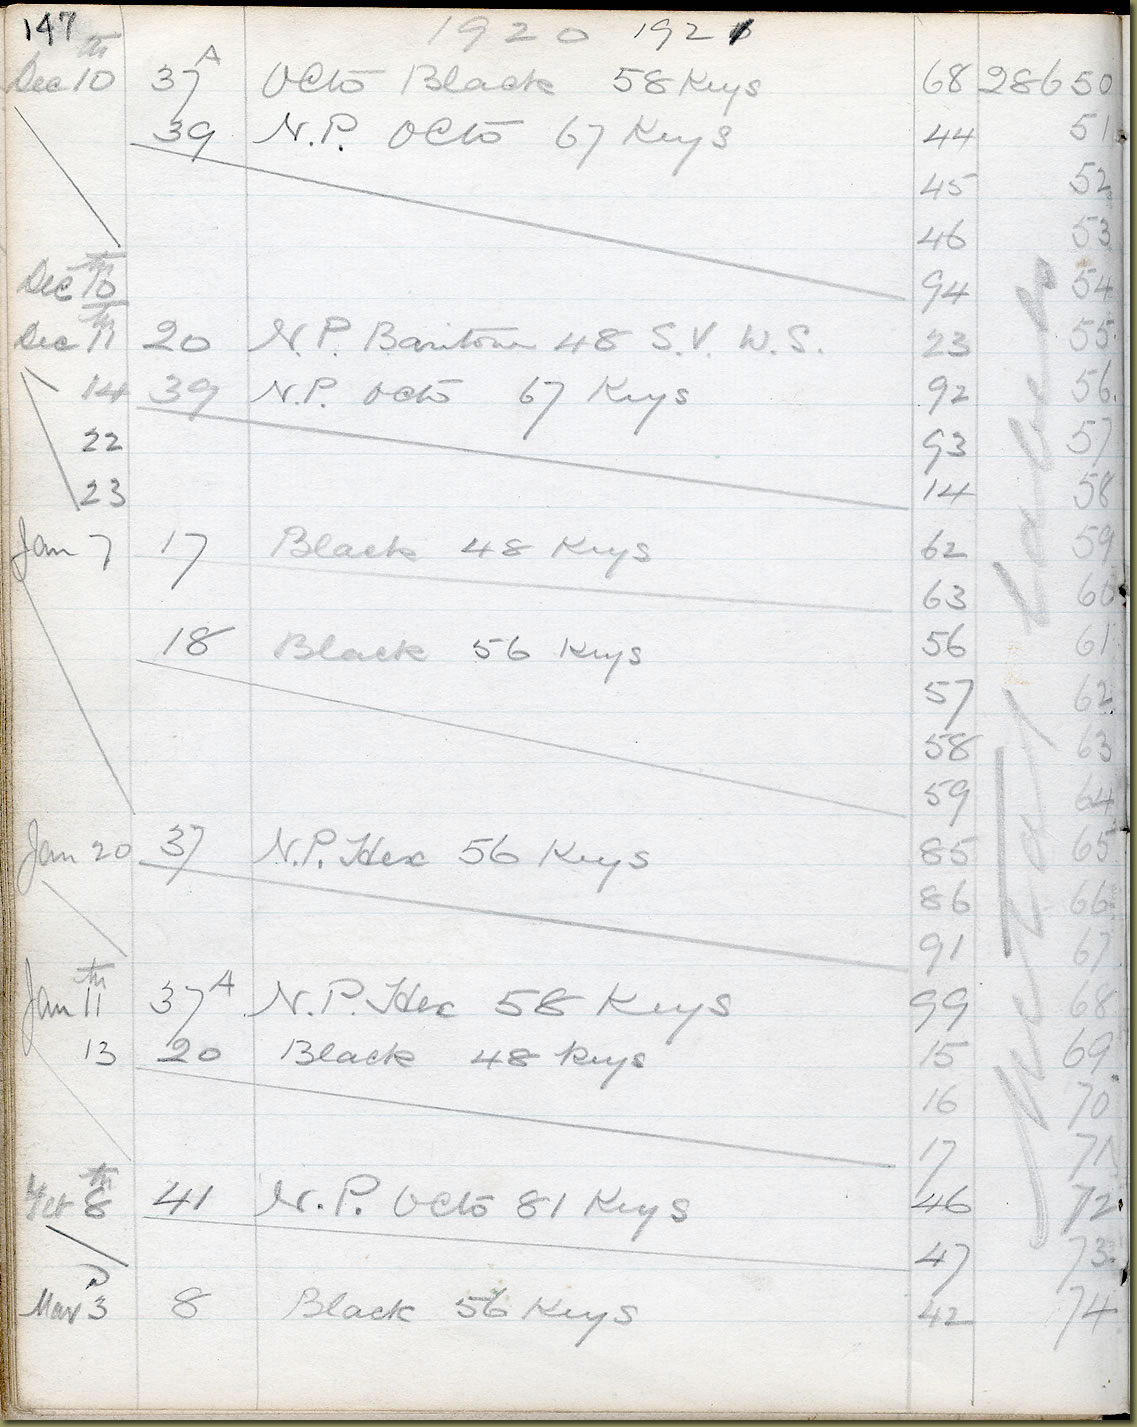 147 1920 1921
Dec 10th 37A Octo Black 58 Keys 68 28650
39 N.P. Octo 67 Keys 44 51
45 52
46 53
Dec 10th 94 54
Dec 11th 20 N.P. Baritone 48 S.V. W.S. 23 55
14 39 N.P. Octo 67 Keys 92 56
22 93 57
23 14 58
Jan 7 17 Black 48 Keys 62 59
63 60
18 Black 56 Keys 56 61
57 62
58 63
59 64
Jan 20 37 N.P. Hex 56 Keys 85 65
86 66
91 67
Jan 11th 37A N.P. Hex 58 Keys 99 68
13 20 Black 48 Keys 15 69
16 70
17 71
8th 41 N.P. Octo 81 Keys 46 72
47 73
Mar 3 8 Black 56 Keys 42 74